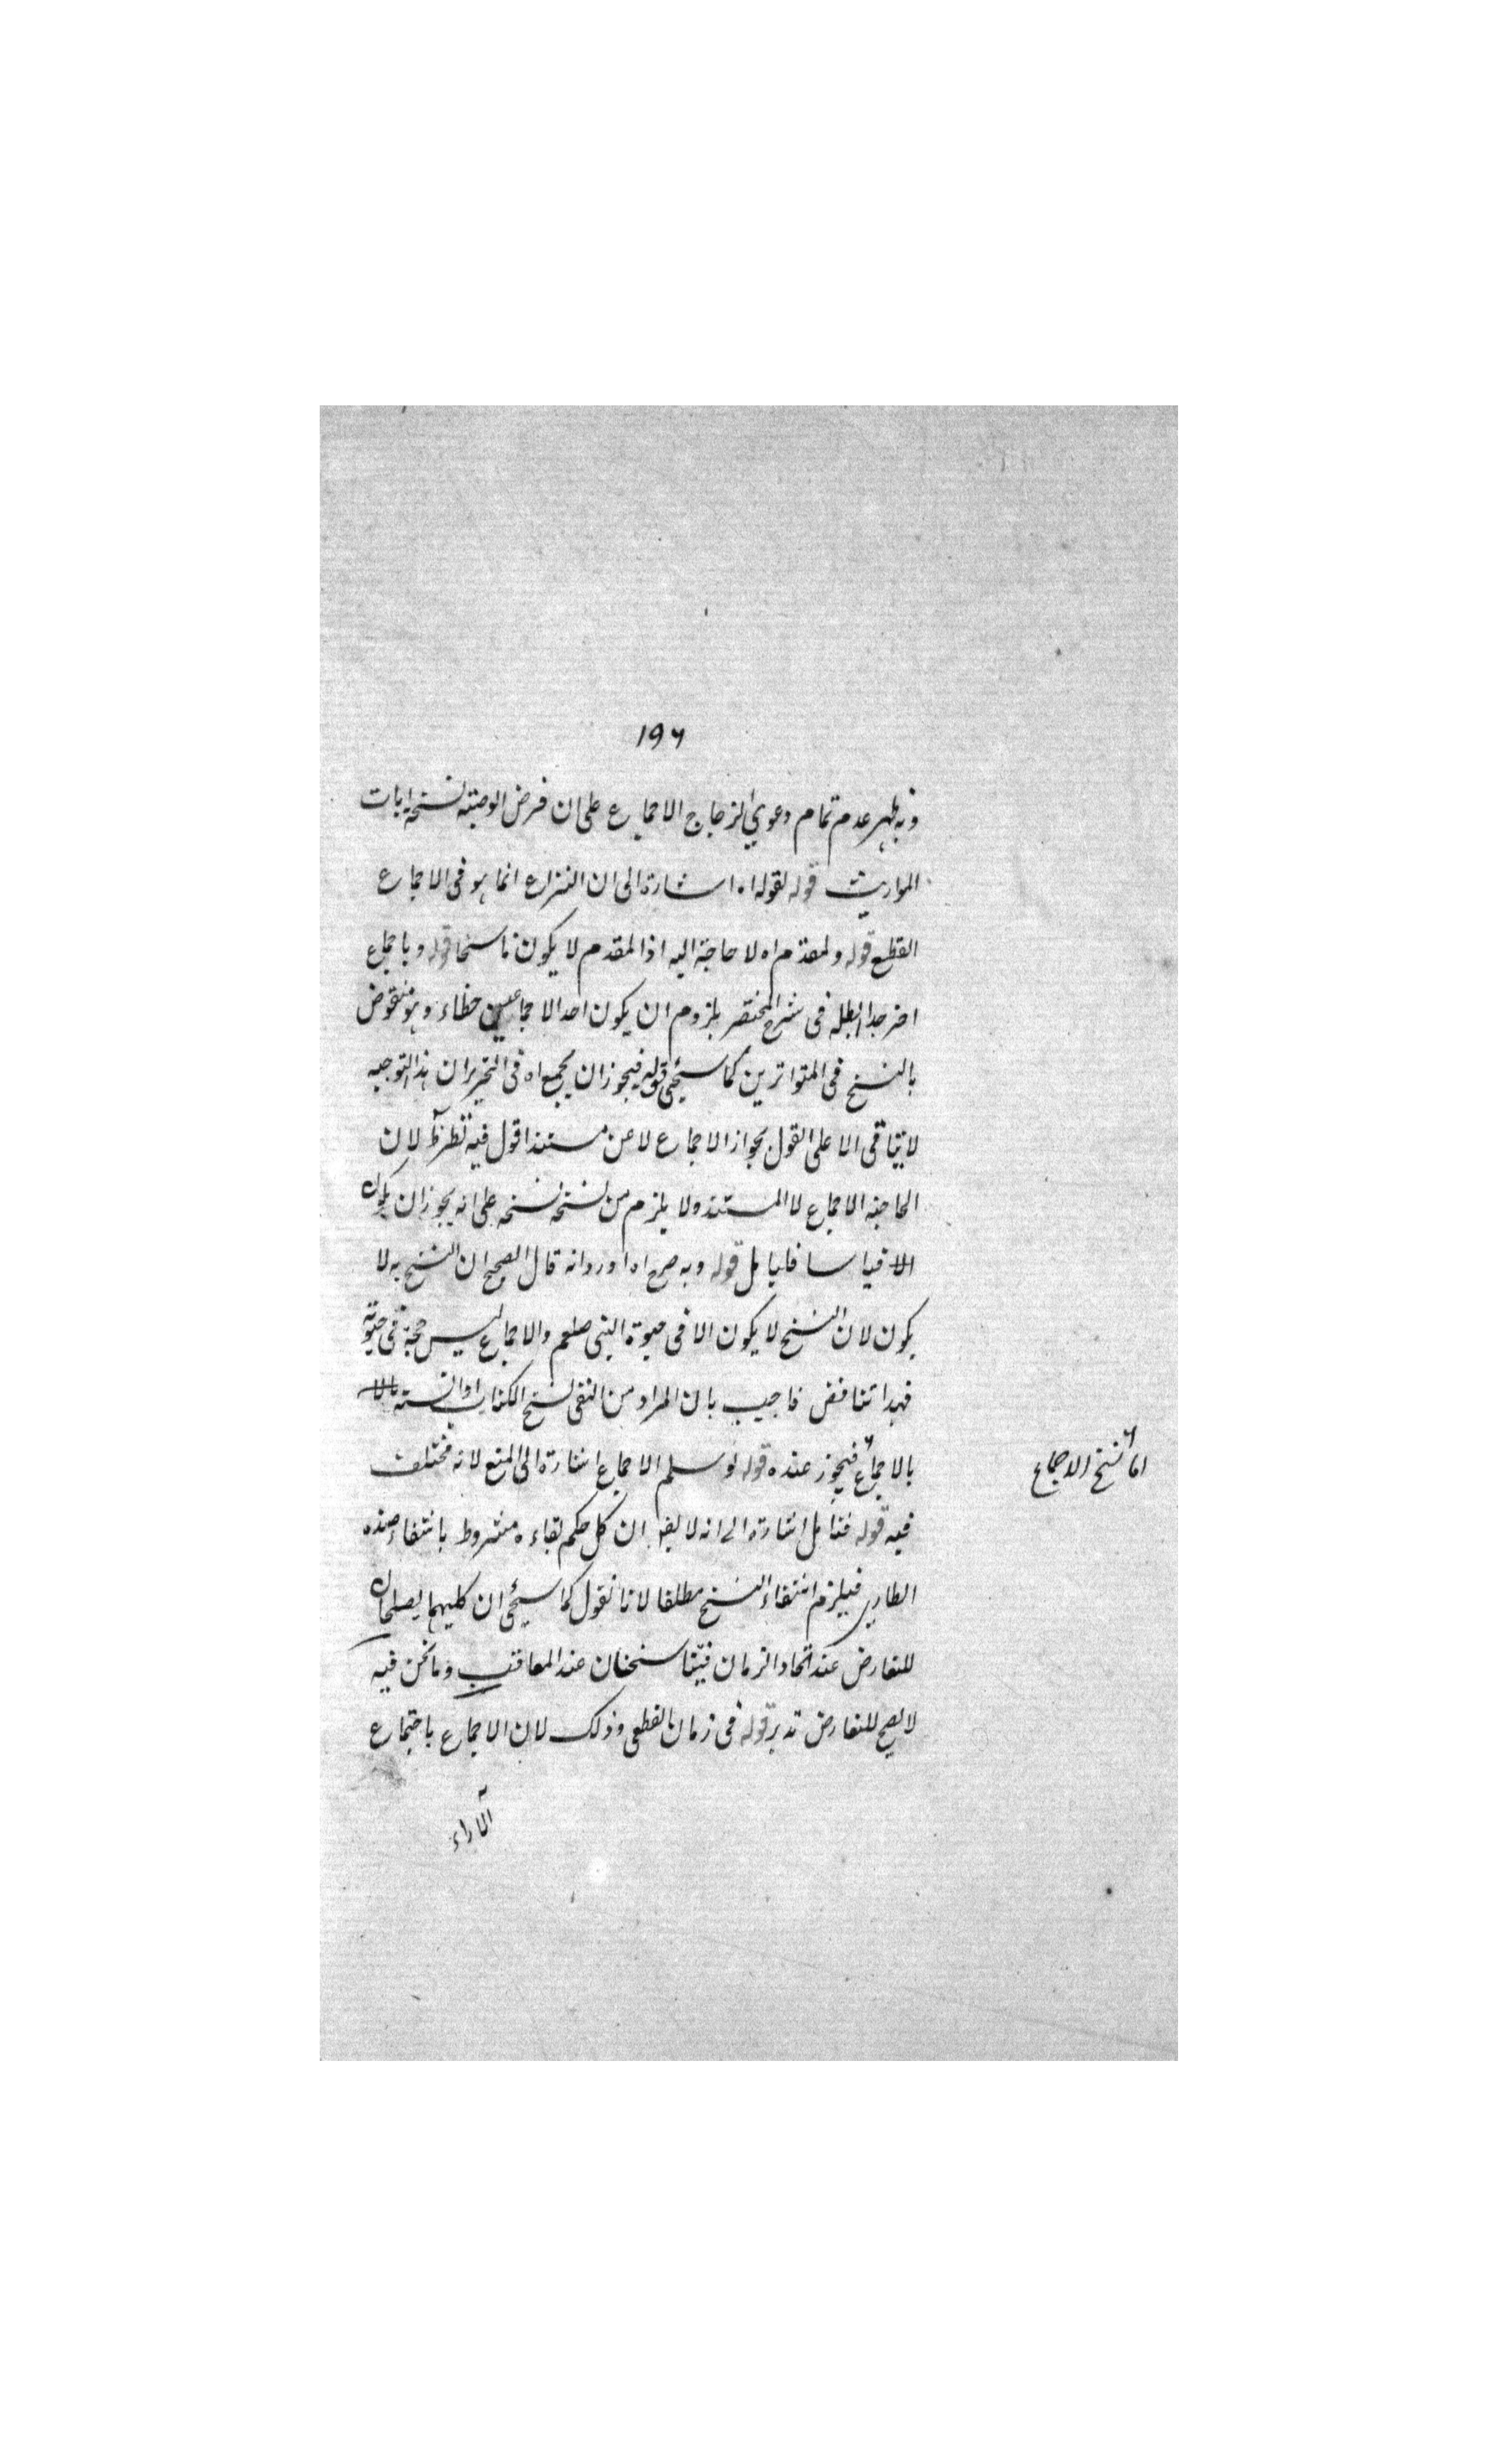 ١٩٦
وبه ظهر عدم تمام دعوى الزجاج الاجماع على ان فرض الوصية نسخه ايات
المواريث قوله لقوله اه اشارة الى ان النزاع انما هو فى الاجماع
القطع قوله ولمقدم اه لا حاجة اليه اذ المقدم لا يكون ناسخا قوله وباجماع
اخر جدا ابطله فى شرح المختصر بلزوم ان يكون احد الاجماعين خطاء وهو منقوض
بالنسخ فى المتواترين كما سيجئ قوله فيجوز ان يجمع اه فى التحرير ان هذا التوجيه
لا يتاقى الا على القول بجواز الاجماع لا عن مستند اقول فيه نظر لان
الحاجة الاجماع لا المستند ولا يلزم من نسخه نسخه على انه يجوز ان يكون
الا قياسا فليامل قوله وبه صرح اه اورد انه قال الصحيح ان النسخ به لا
يكون لان النسخ لا يكون الا فى حيوة النبى صلعم والاجماع ليس حجة فى حيوته
فهذا تناقض فاجيب بان المراد من النفى نسخ الكتاب او السنة
بالاجماع فيجوز عنده قوله لو سلم الاجماع اشارة الى المنع لانه مختلف
اما نسخ الاجماع
فيه قوله فتامل اشارة الى انه لا يقا ان كل حكم بقاءه مشروط بانتفاء ضده
الطارى فيلزم انتفاء النسخ مطلقا لانا نقول كما سيجئ ان كليهما يصلحان
للتعارض عند اتحاد الزمان فيتناسخان عند المعاقب وما نحن فيه
لا يصح للتعارض تدبر قوله فى زمان القطعى وذلك لان الاجماع باجتماع
الآراء